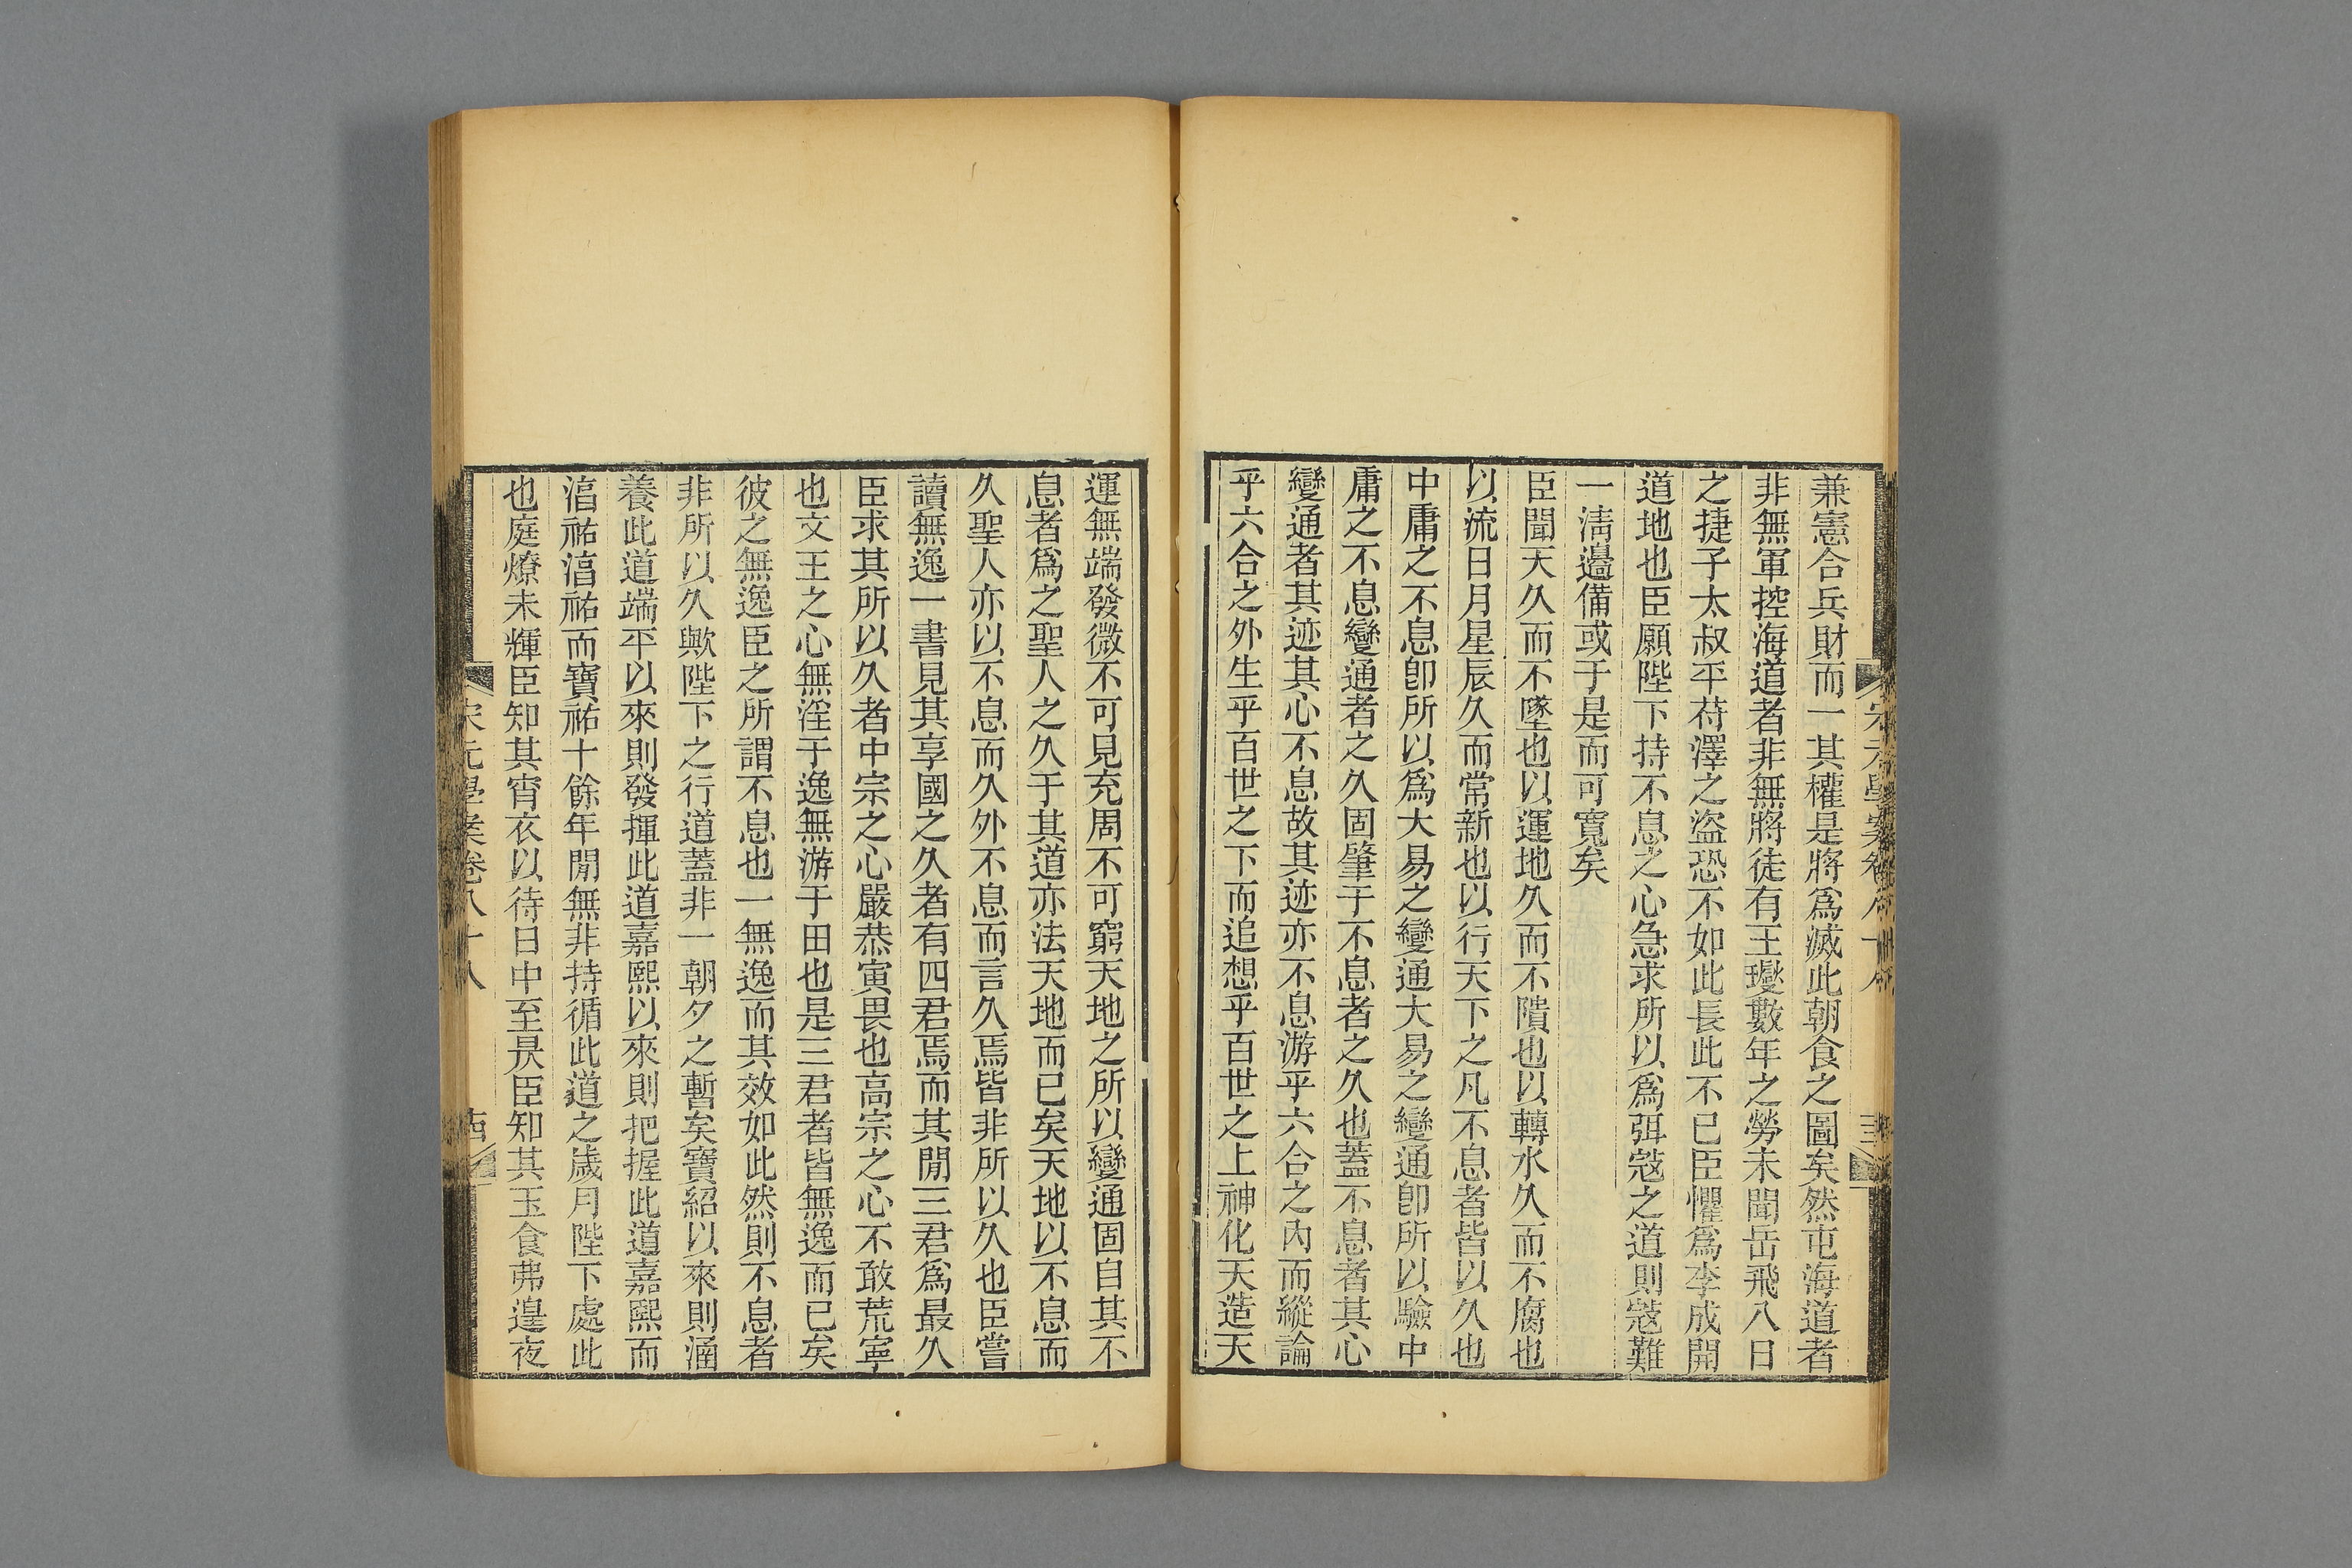 兼憲合兵財而一其權是將爲滅此朝食之圖矣然屯海道者
非無軍控海道者非無將徒有王𤫉數年之勞未聞岳飛八日
之捷子太叔平苻澤之盜恐不如此長此不已臣懼爲李成開
道地也臣願陛下持不息之心急求所以爲弭宼之道則宼難
一淸邉備或于是而可寬矣
臣聞天久而不墜也以運地久而不隤也以轉水久而不腐也
以流日月星辰久而常新也以行天下之凡不息者皆以久也
中庸之不息卽所以爲大易之變通大易之變通卽所以驗中
庸之不息變通者之久固肇于不息者之久也蓋不息者其心
變通者其迹其心不息故其迹亦不息游乎六合之內而縱論
乎六合之外生乎百世之下而追想乎百世之上神化天造天
宋元學案卷八十八
運無端發微不可見充周不可窮天地之所以變通固自其不
息者爲之聖人之久于其道亦法天地而已矣天地以不息而
久聖人亦以不息而久外不息而言久焉皆非所以久也臣嘗
讀無逸一書見其享國之久者有四君焉而其閒三君爲最久
臣求其所以久者中宗之心嚴恭寅畏也高宗之心不敢荒寧
也文王之心無淫于逸無游于田也是三君者皆無逸而已矣
彼之無逸臣之所謂不息也一無逸而其效如此然則不息者
非所以久歟陛下之行道蓋非一朝夕之暫矣寶紹以來則涵
養此道端平以來則發揮此道嘉熙以來則把握此道嘉熙而
湻祐湻祐而寶祐十餘年閒無非持循此道之歲月陛下處此
也庭燎未輝臣知其宵衣以待日中至昃臣知其玉食弗遑夜
宋元學案卷八十八